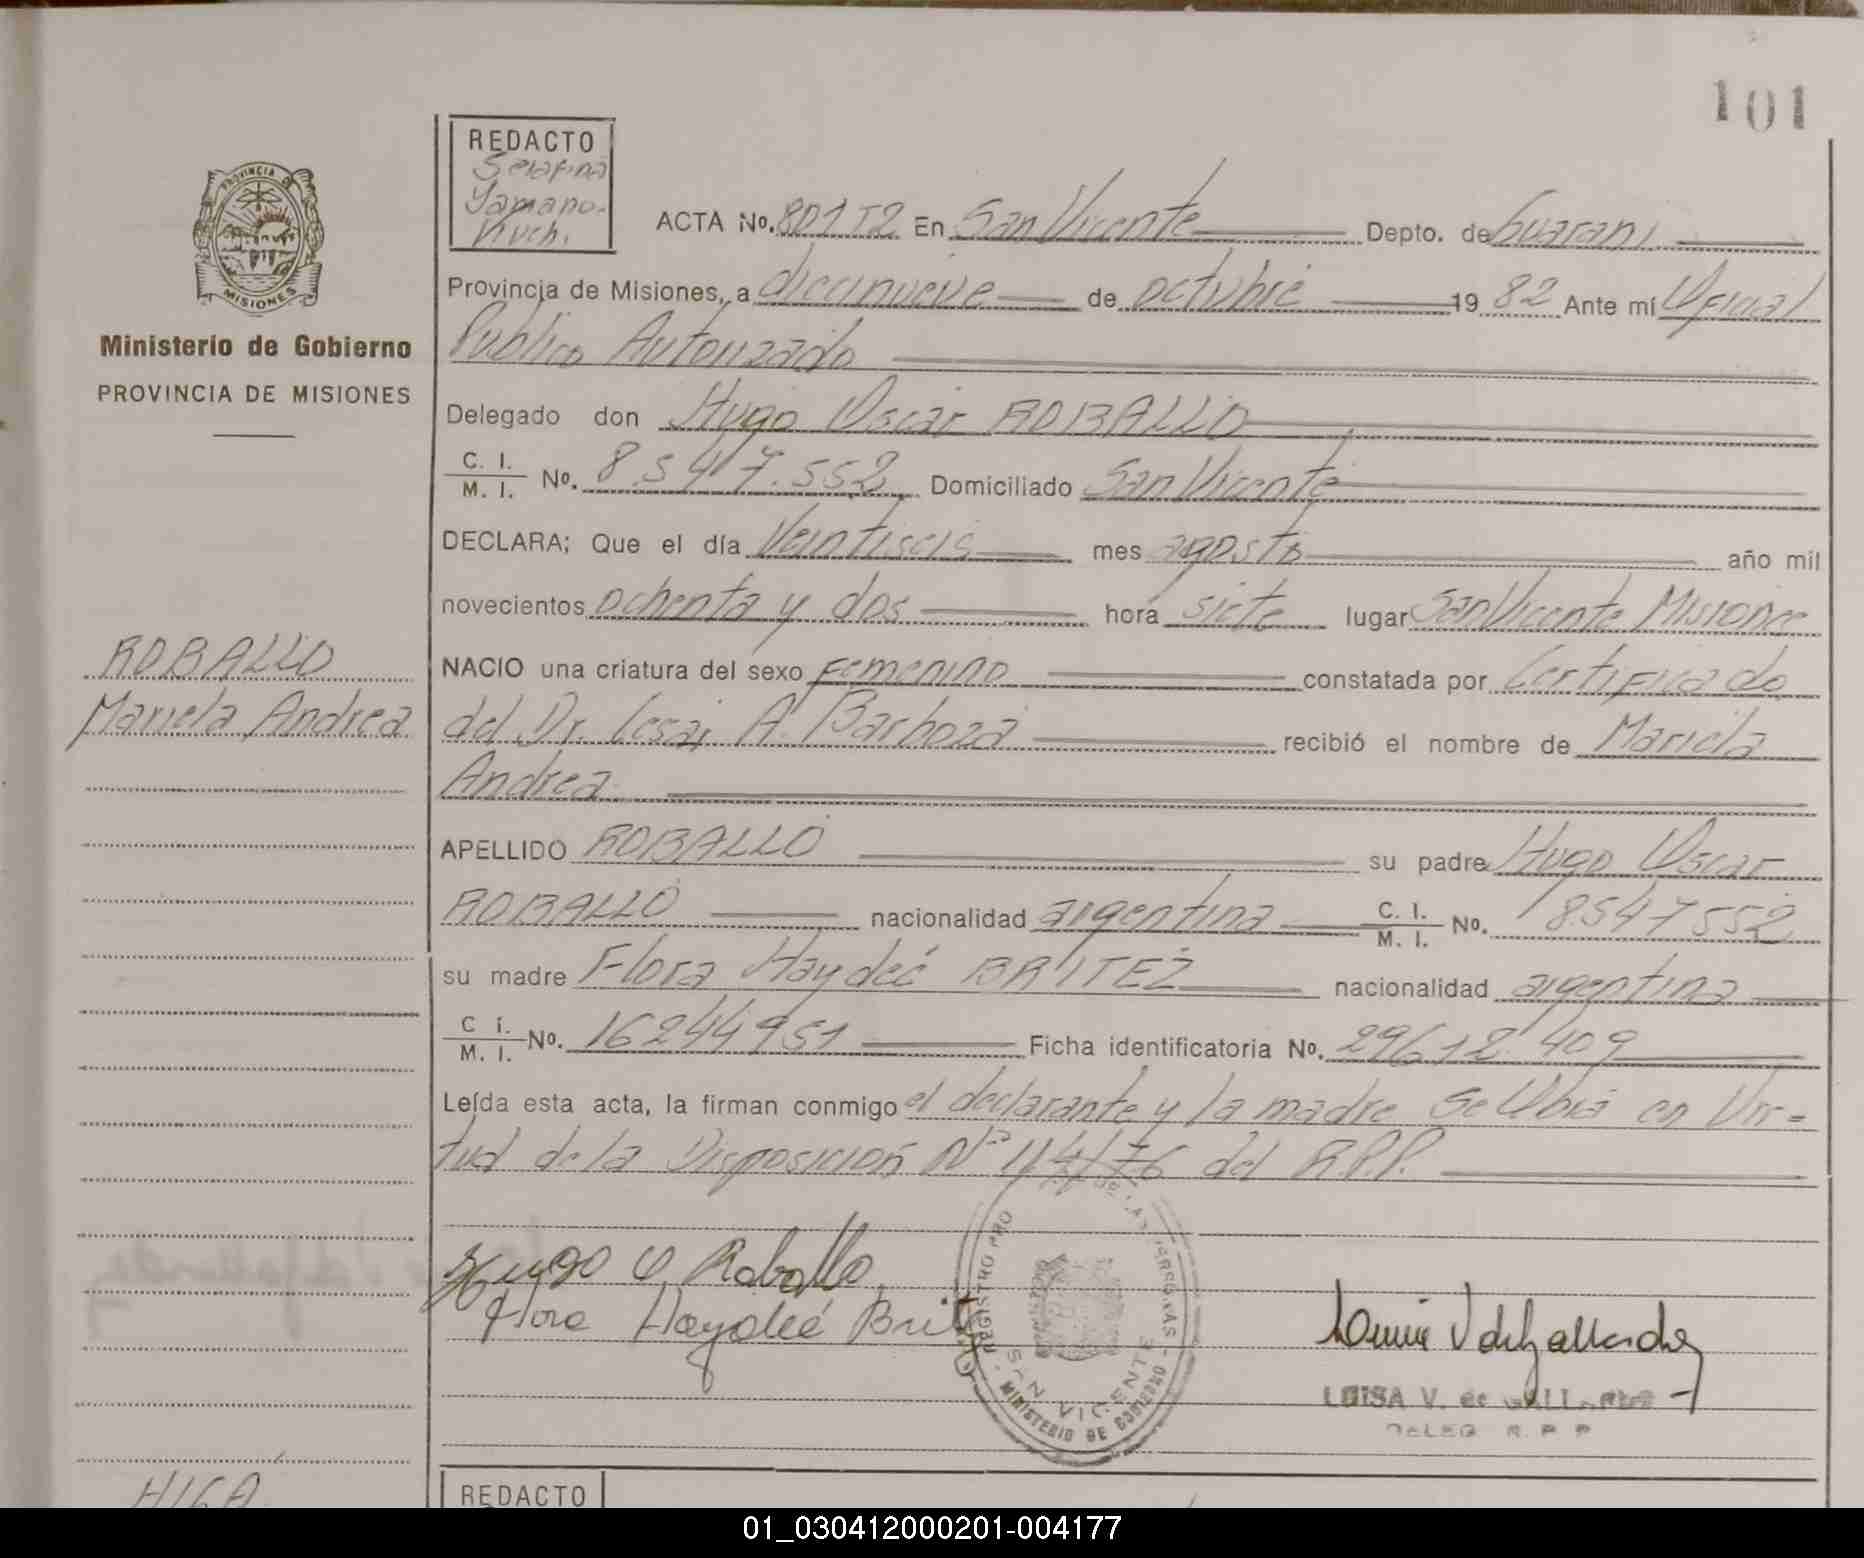 101
REDACTO
Serafina
Yamano-
vich.
PROVINCIA DE
MISIONES
Ministerio de Gobierno
PROVINCIA DE MISIONES
ACTA No. 801 T2 En San Vicente Depto. de Guaraní
Provincia de Misiones, a diecinueve de octubre 1982 Ante mí Oficial
Público Autorizado
Delegado don Hugo Oscar ROBALLO
C. I. / M. I. No. 8.547.552 Domiciliado San Vicente
DECLARA; Que el día Veintiseis mes agosto año mil
novecientos ochenta y dos hora siete lugar San Vicente Misiones
ROBALLO
Mariela Andrea
NACIO una criatura del sexo femenino constatada por Certificado
del Dr. Cesar A. Barboza recibió el nombre de Mariela
Andrea
APELLIDO ROBALLO su padre Hugo Oscar
ROBALLO nacionalidad argentina C. I. / M. I. No. 8547552
su madre Flora Haydeé BRITEZ nacionalidad argentina
C I. / M. I. No. 16244951 Ficha identificatoria No. 29612409
Leída esta acta, la firman conmigo el declarante y la madre Se Ubia en Vir=
tud de la Disposicion Nº 114/76 del R.P.P.
Hugo O. Roballo
Flora Haydeé Brit
REGISTRO PRO
DE LAS PERSONAS
SAN VICENTE
MINISTERIO DE GOBIERNO
LUISA V. de GALLARDO
DELEG R. P. P
REDACTO
01_030412000201-004177